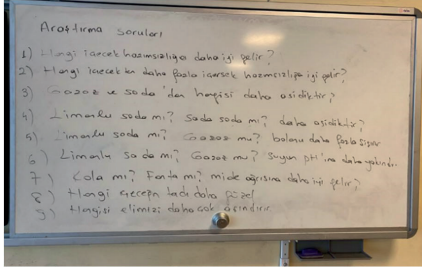 Araştırma Soruları
1) Hangi içecek hazımsızlığa daha iyi gelir?
2) Hangi içecekten daha fazla içersek hazımsızlığa iyi gelir?
3) Gazoz ve soda'dan hangisi daha asidiktir?
4) Limonlu soda mı? Sade soda mı? daha asidiktir?
5) Limonlu soda mı? Gazoz mu? balonu daha fazla şişirir
6) Limonlu soda mı? Gazoz mu? suyun pH'ına daha yakındır
7) Cola mı? Fanta mı? mide ağrısına daha iyi gelir?
8) Hangi tadı daha güzel
9) Hangisi elimizi daha çok aşındırır